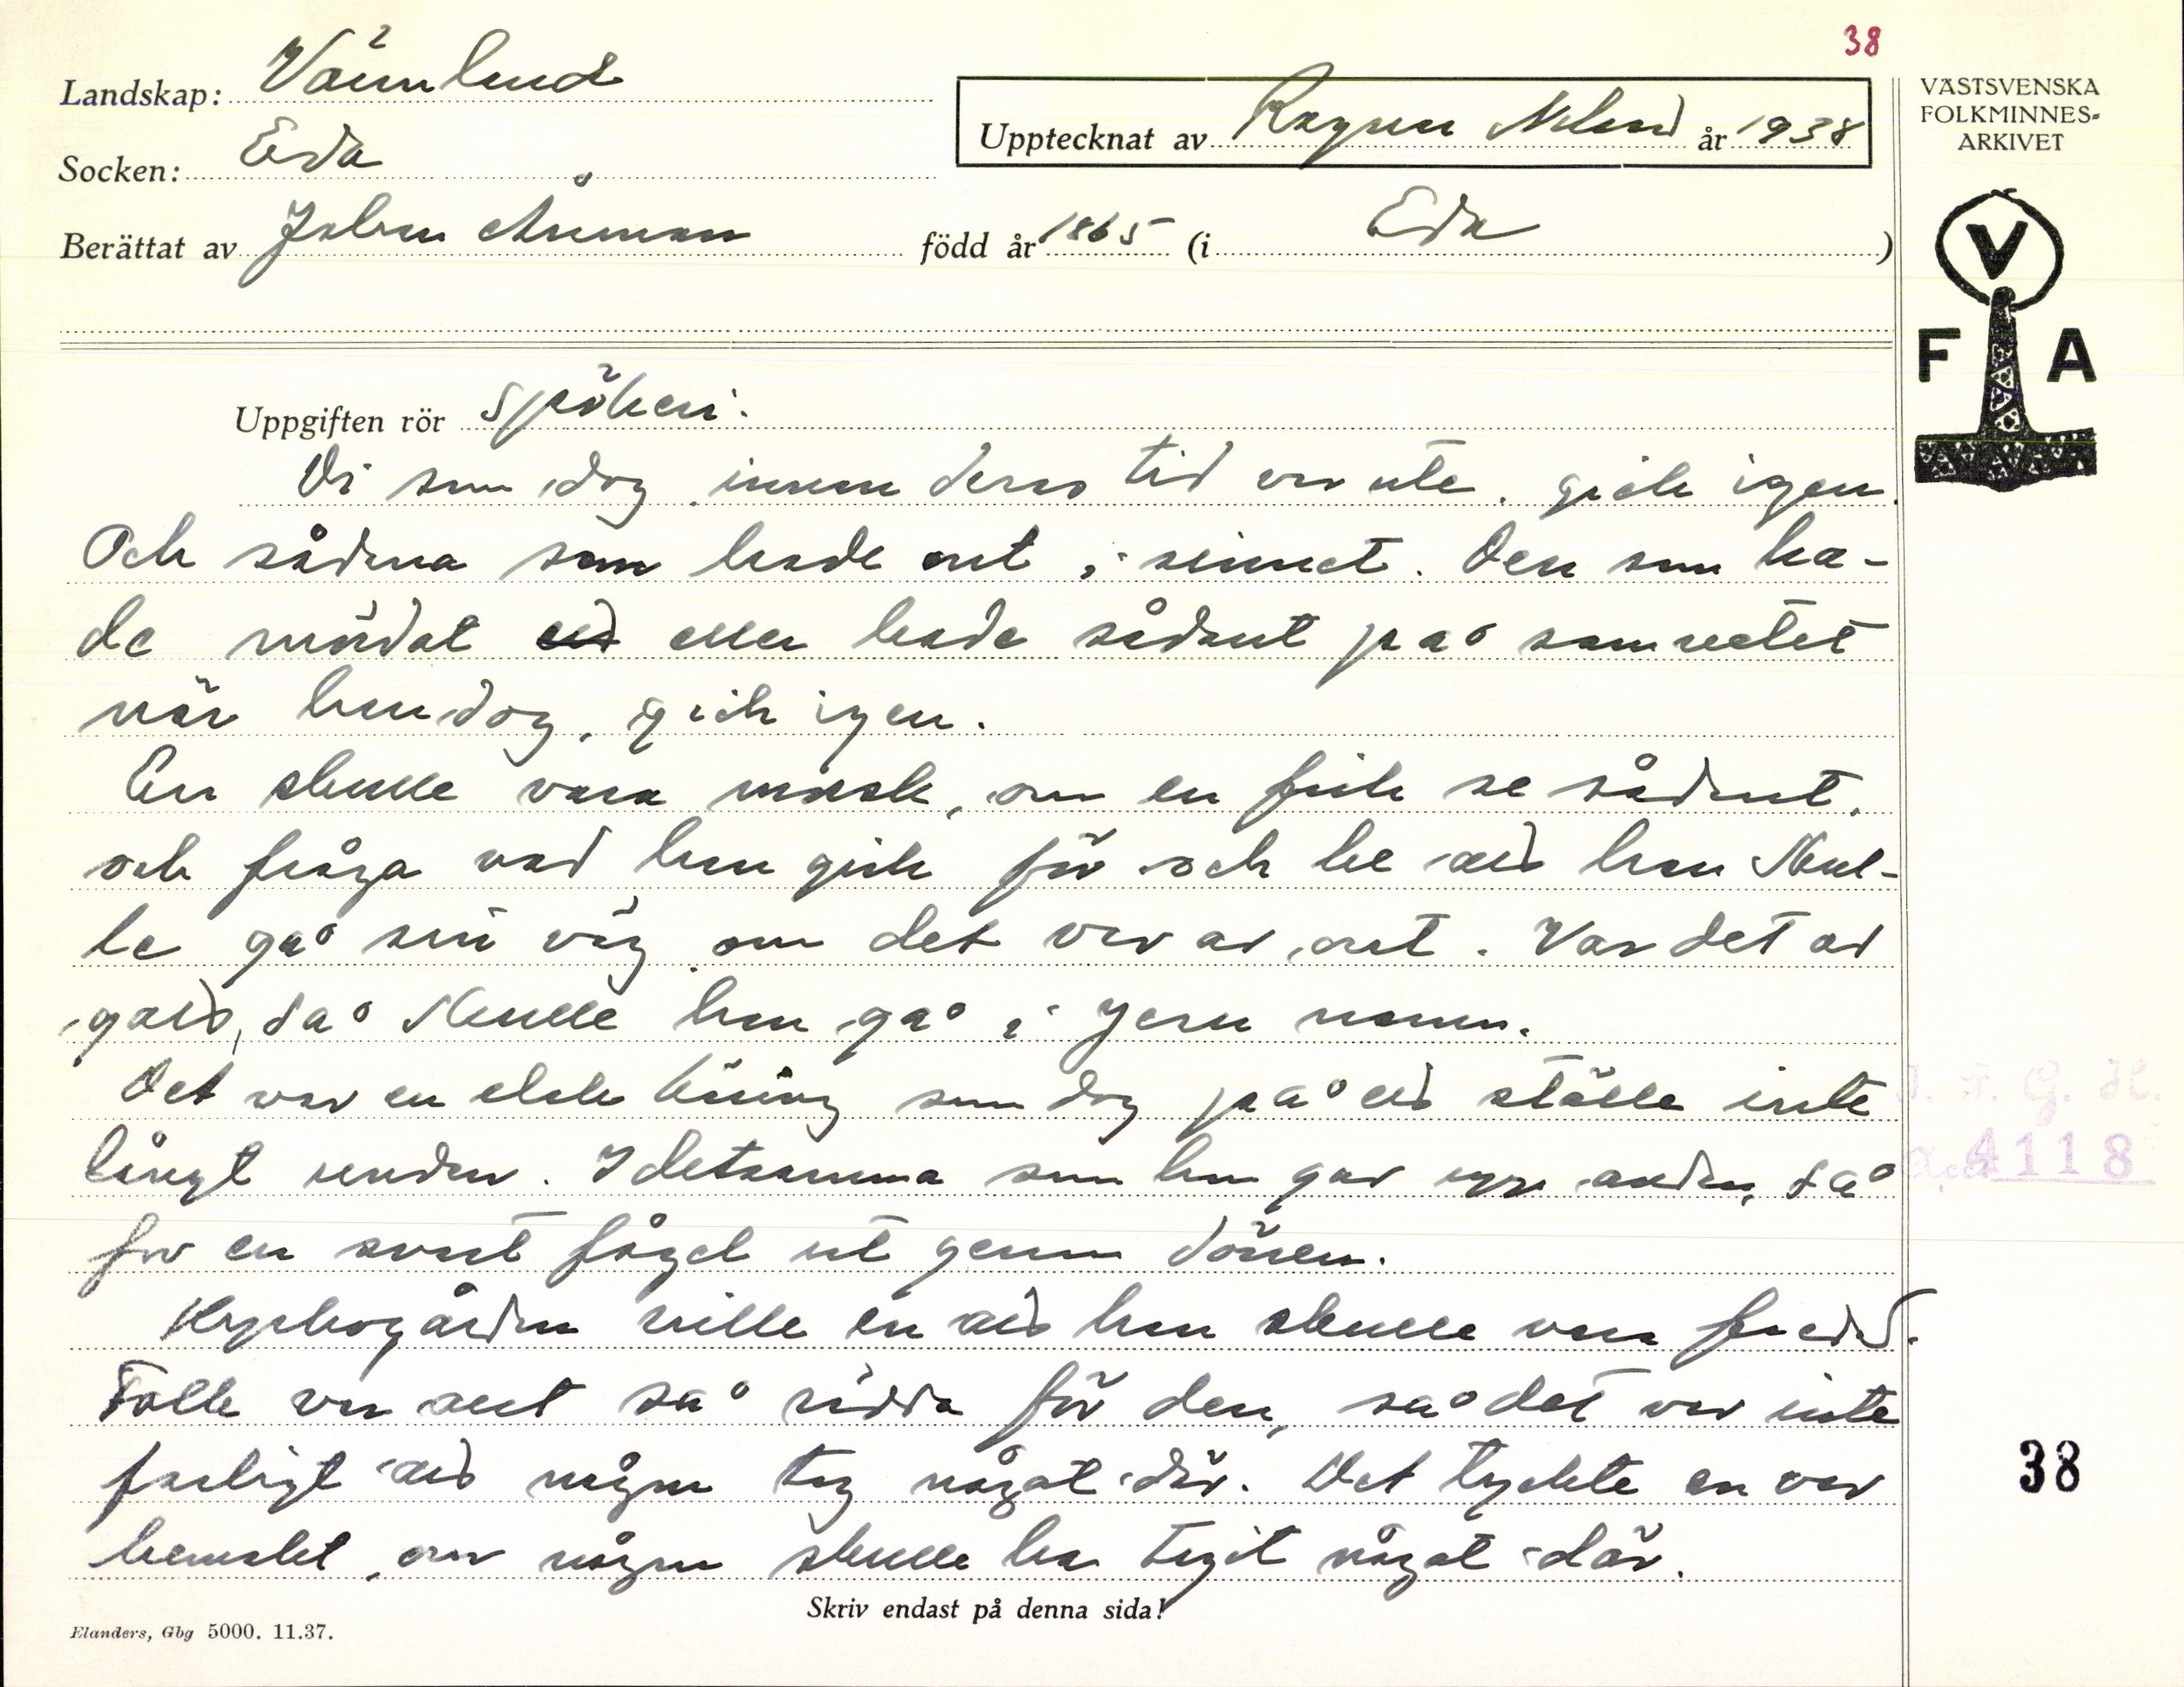 38
Landskap: Värmland
Socken: Eda
Upptecknat av Ragnar Nilsson år 1938
Berättat av Johan Åmman född år 1865 (i Eda)
VÄSTSVENSKA
FOLKMINNES-
ARKIVET
V
F A
Uppgiften rör spökeri.
Di som dog innan deras tid var ute, gick igen.
Och sådana som hade ont i sinnet. Den som ha-
de mördat eller hade sådant på samvetet
när han dog, gick igen.
En skulle vara morsk, om en fick se sådant,
och fråga vad han gick för och be att han skul-
le gå sin väg om det var av ont. Var det av
gott, då skulle han gå i Jesu namn.
Det var en elak käring som dog på ett ställe inte
långt undan. I detsamma som hon gav upp andan, så
for en svart fågel ut genom dörren.
Kyrkogården ville en att han skulle vara fredad.
Folk var allt så rädda för den, så det var inte
farligt att någon tog något där. Det tyckte en var
hemskt, om någon skulle ha tagit något där.
4118
38
Skriv endast på denna sida!
Elanders, Gbg 5000. 11.37.